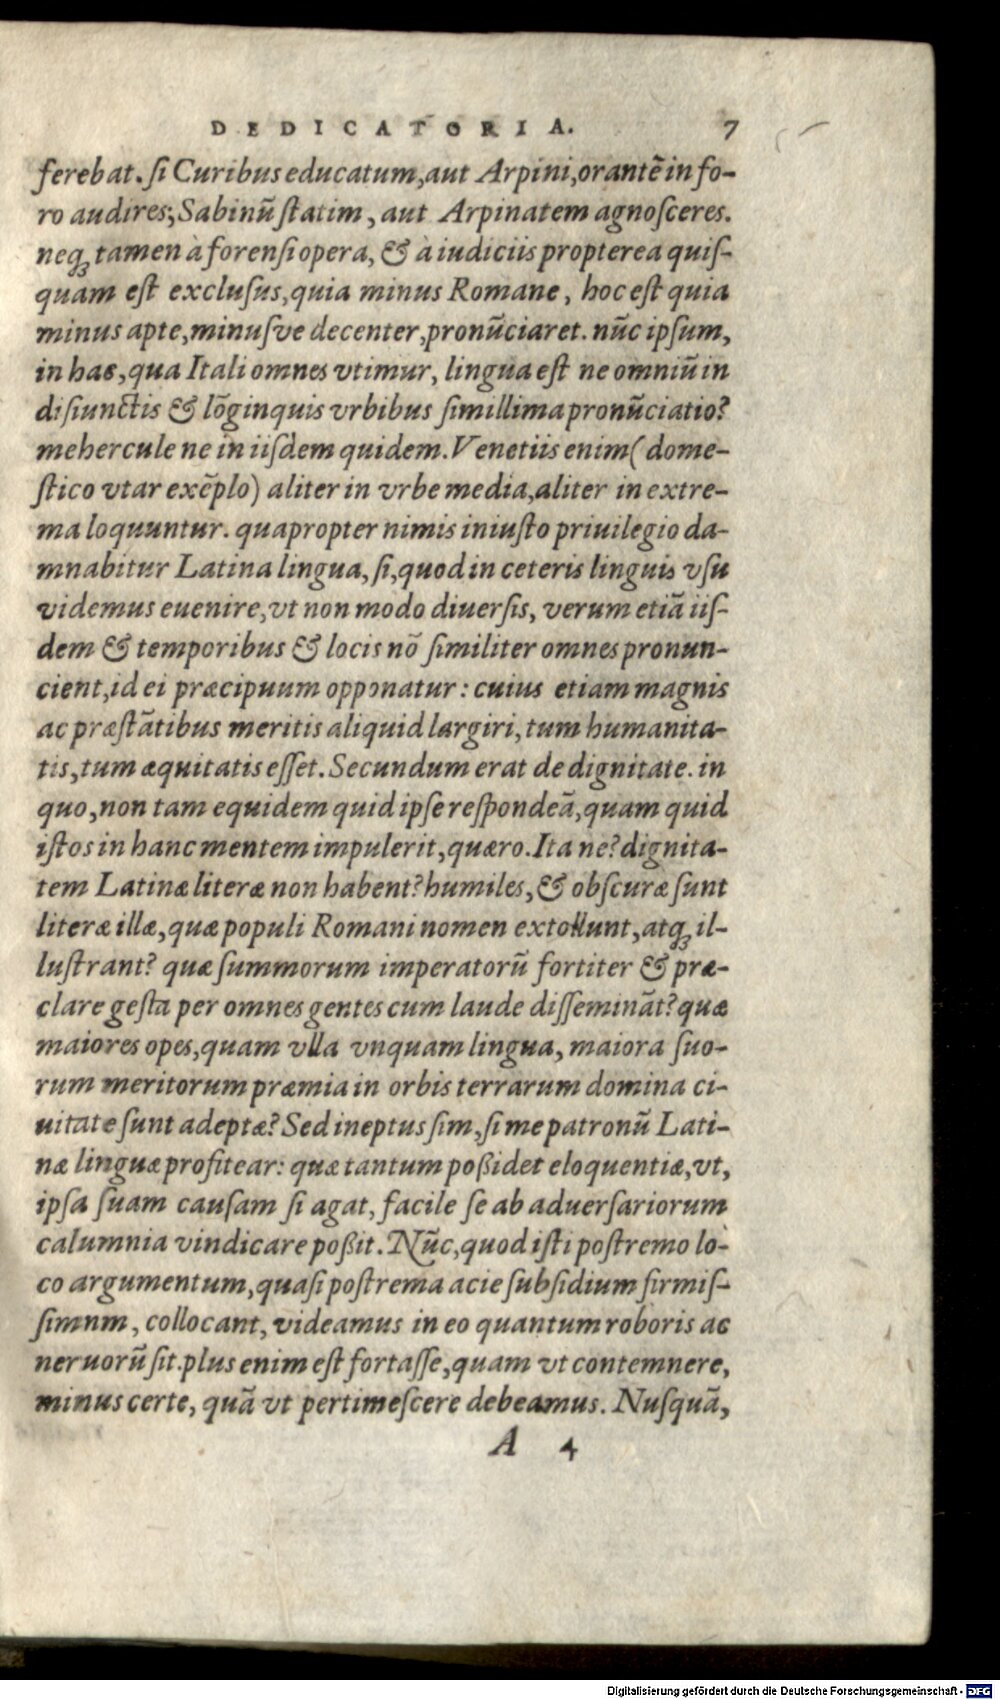 DEDICATORIA. 7
ferebat. ſi Curibus educatum, aut Arpini, orantē in fo-
ro audires; Sabinū ſtatim, aut Arpinatem agnoſceres.
neq; tamen à forenſi opera, & à iudiciis propterea quiſ-
quam eſt excluſus, quia minus Romane, hoc eſt quia
minus apte, minuſve decenter, pronūciaret. nūc ipſum,
in hac, qua Itali omnes vtimur, lingua eſt ne omniū in
diſiunctis & lōginquis vrbibus ſimillima pronūciatio?
mehercule ne in iiſdem quidem. Venetiis enim (dome-
ſtico vtar exēplo) aliter in vrbe media, aliter in extre-
ma loquuntur. quapropter nimis iniuſto priuilegio da-
mnabitur Latina lingua, ſi, quod in ceteris linguis vſu
videmus euenire, vt non modo diuerſis, verum etiā iiſ-
dem & temporibus & locis nō ſimiliter omnes pronun-
cient, id ei præcipuum opponatur: cuius etiam magnis
ac præſtātibus meritis aliquid largiri, tum humanita-
tis, tum æquitatis eſſet. Secundum erat de dignitate. in
quo, non tam equidem quid ipſe reſpondeā, quam quid
iſtos in hanc mentem impulerit, quæro. Ita ne? dignita-
tem Latinæ literæ non habent? humiles, & obſcuræ ſunt
literæ illæ, quæ populi Romani nomen extollunt, atq; il-
luſtrant? quæ ſummorum imperatorū fortiter & præ-
clare geſta per omnes gentes cum laude diſſemināt? quæ
maiores opes, quam vlla vnquam lingua, maiora ſuo-
rum meritorum præmia in orbis terrarum domina ci-
uitate ſunt adeptæ? Sed ineptus ſim, ſi me patronū Lati-
næ linguæ profitear: quæ tantum poßidet eloquentiæ, vt,
ipſa ſuam cauſam ſi agat, facile ſe ab aduerſariorum
calumnia vindicare poßit. Nūc, quod iſti poſtremo lo-
co argumentum, quaſi poſtrema acie ſubſidium firmiſ-
ſimnm, collocant, videamus in eo quantum roboris ac
neruorū ſit. plus enim eſt fortaſſe, quam vt contemnere,
minus certe, quā vt pertimeſcere debeamus. Nuſquā,
A 4
Digitalisierung gefördert durch die Deutsche Forschungsgemeinschaft - DFG